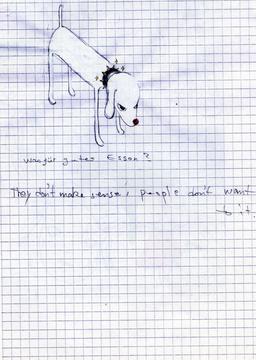 was für gutes Essen?
They don't make sense, people don't want
to it.